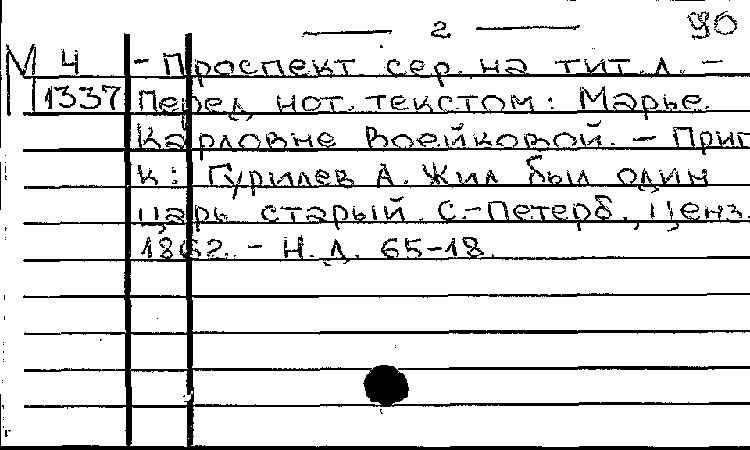 — 2 — 90
М 4 - Проспект сер. на тит. л. -
1337 Перед нот. текстом: Марье
Карловне Воейковой. - Приг
к: Гурилев А. Жил был один
царь старый. С.-Петерб., ценз.
1862. - Н. д. 65-18.